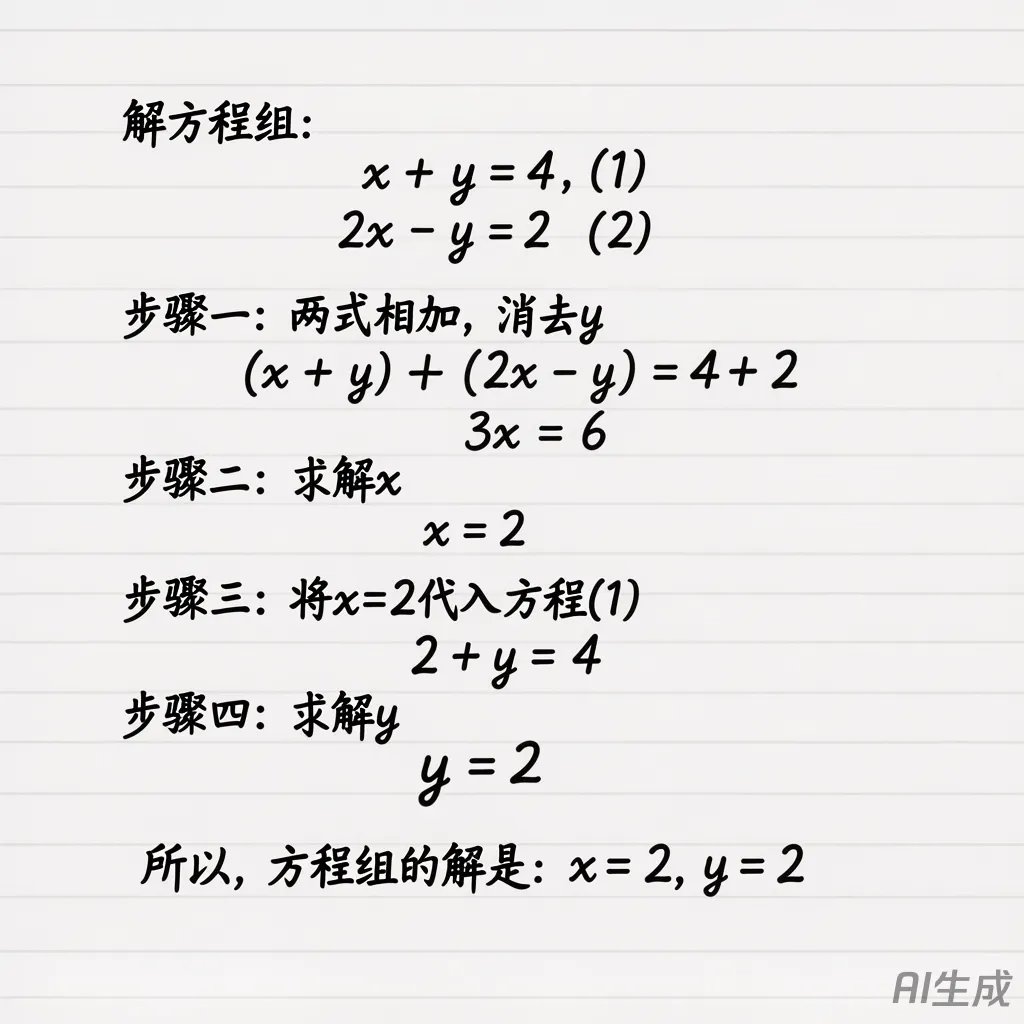 解方程组：
x + y = 4, (1)
2x - y = 2 (2)
步骤一：两式相加，消去y
(x + y) + (2x - y) = 4 + 2
3x = 6
步骤二：求解x
x = 2
步骤三：将x=2代入方程(1)
2 + y = 4
步骤四：求解y
y = 2
所以，方程组的解是：x = 2, y = 2
AI生成